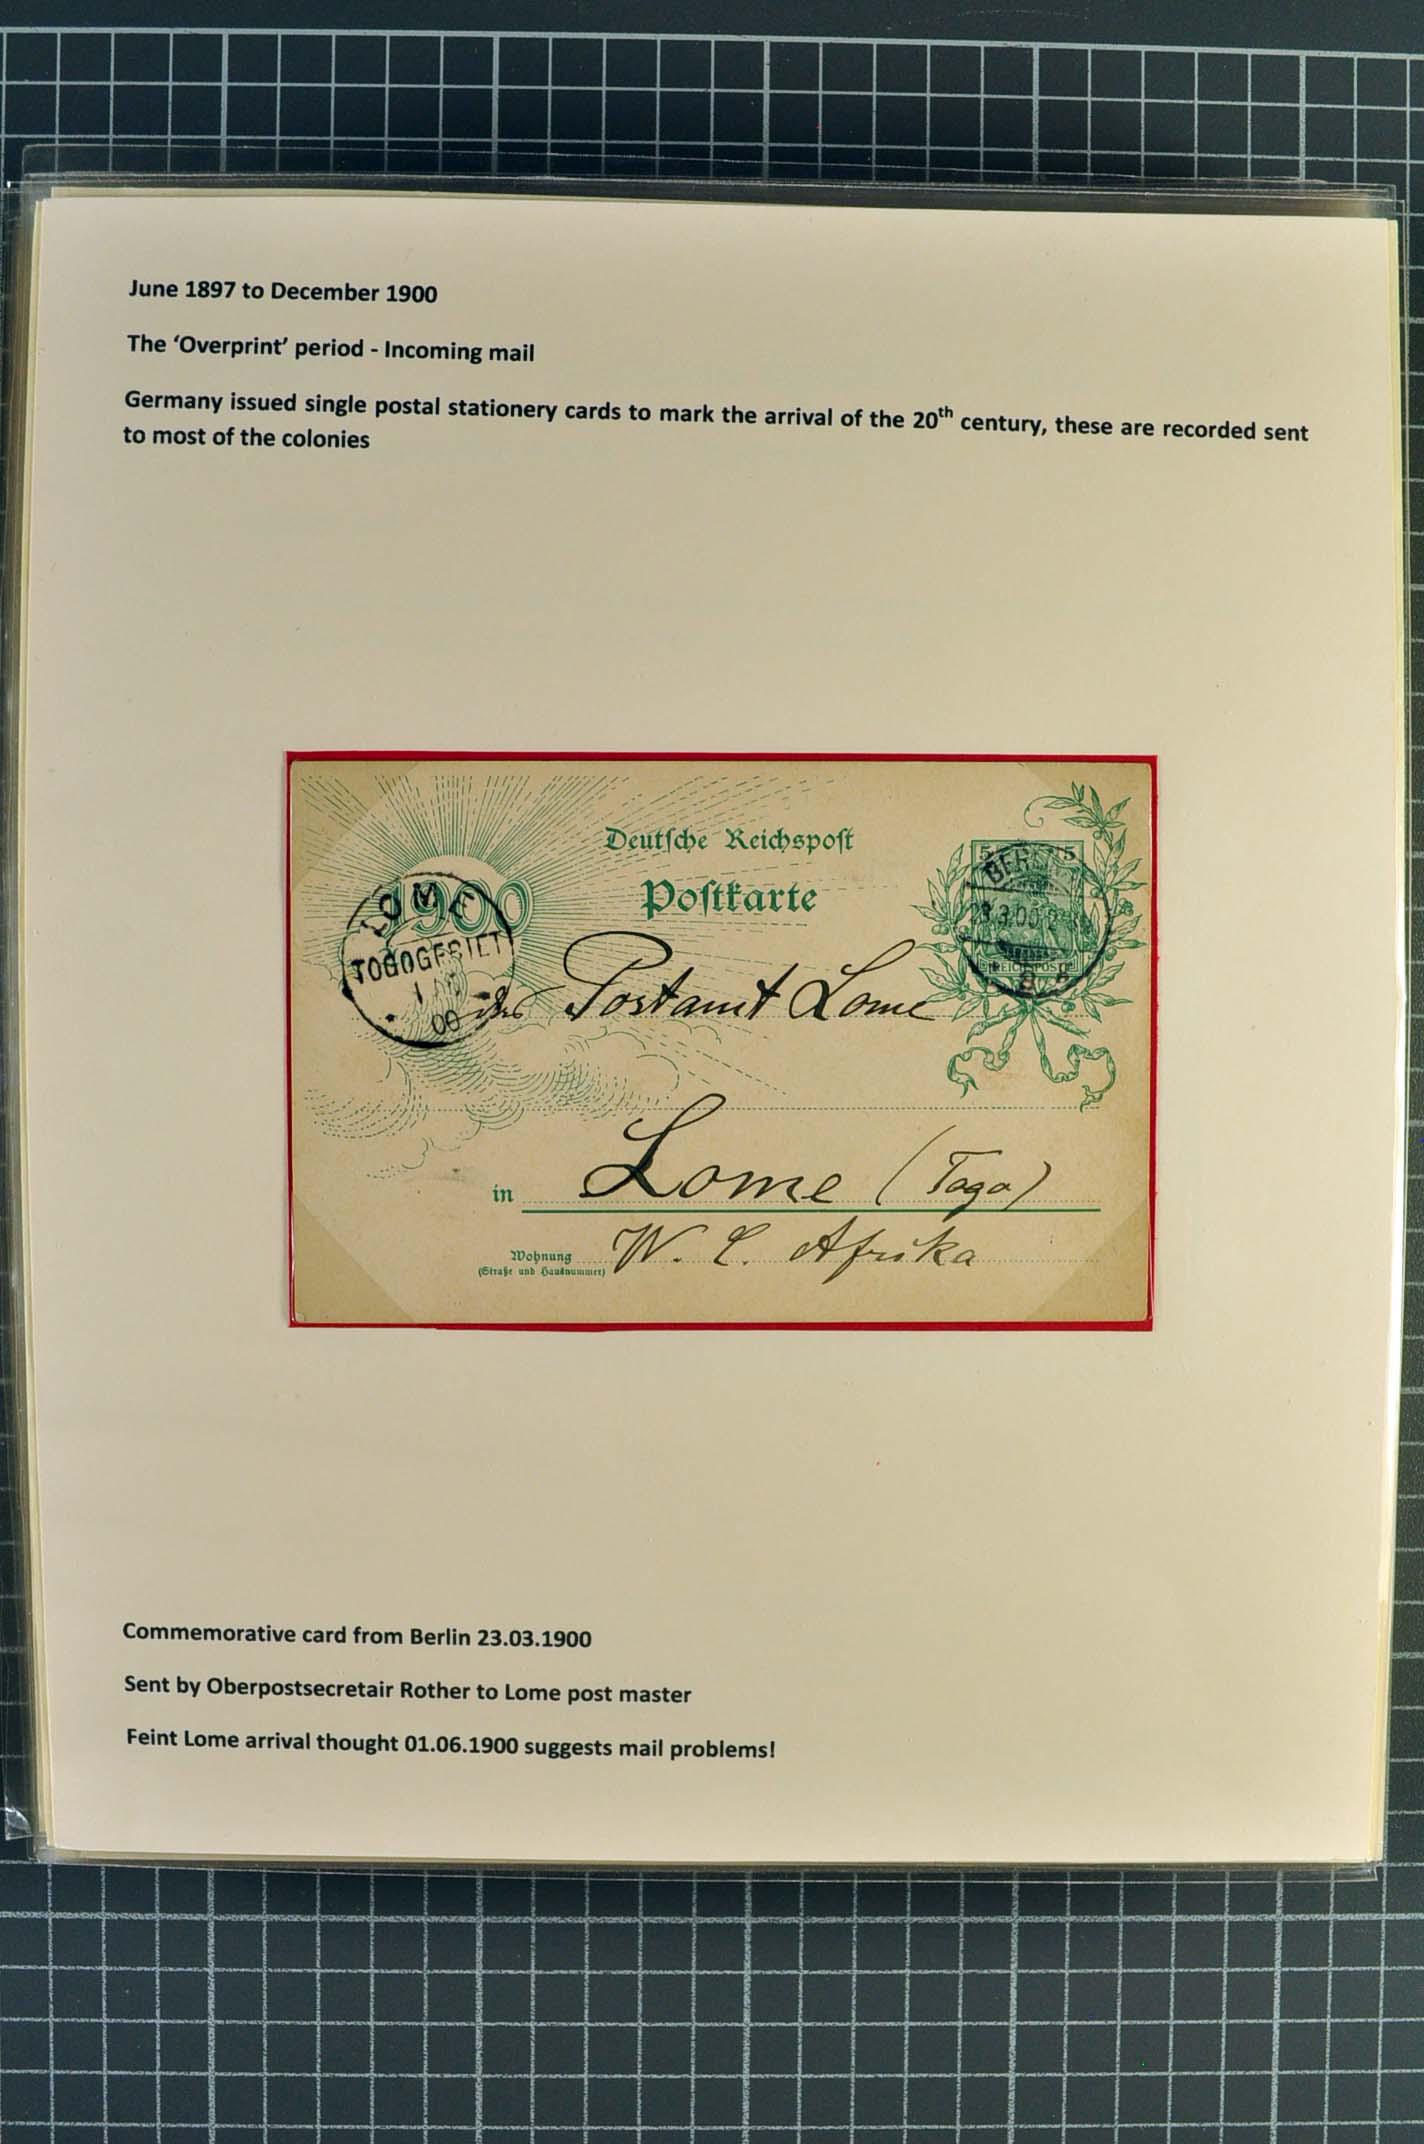 June 1897 to December 1900
The ‘Overprint’ period - Incoming mail
Germany issued single postal stationery cards to mark the arrival of the 20th century, these are recorded sent
to most of the colonies
Deutsche Reichspost
Postkarte
1900
5 5
REICHSPOST
BERLIN
23.3.00
LOME
TOGOGEBIET
00
das Postamt Lome
in Lome (Togo)
Wohnung W. C. Afrika
(Straße und Hausnummer)
Commemorative card from Berlin 23.03.1900
Sent by Oberpostsecretair Rother to Lome post master
Feint Lome arrival thought 01.06.1900 suggests mail problems!